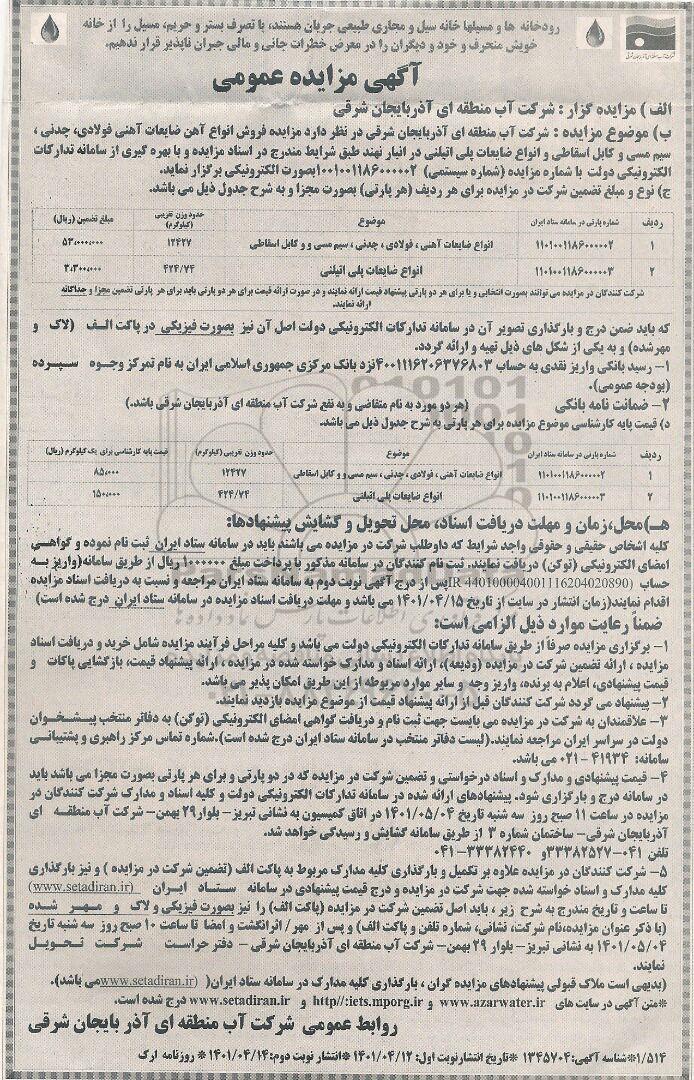 رودخانه ها و مسیلها خانه سیل و مجاری طبیعی جریان هستند، با تصرف بستر و حریم، مسیل را از خانه
خویش منحرف و خود و دیگران را در معرض خطرات جانی و مالی جبران ناپذیر قرار ندهیم.
آگهی مزایده عمومی
الف ) مزایده گزار : شرکت آب منطقه ای آذربایجان شرقی
ب) موضوع مزایده : شرکت آب منطقه ای آذربایجان شرقی در نظر دارد مزایده فروش انواع آهن ضایعات آهنی فولادی، چدنی ،
سیم مسی و کابل اسقاطی و انواع ضایعات پلی اتیلنی در انبار نهند طبق شرایط مندرج در اسناد مزایده و با بهره گیری از سامانه تدارکات
الکترونیکی دولت با شماره مزایده (شماره سیستمی) ۱۰۰۱۰۰۱۱۸۶۰۰۰۰۰۲بصورت الکترونیکی برگزار نماید.
ج) نوع و مبلغ تضمین شرکت در مزایده برای هر ردیف (هر پارتی) بصورت مجزا و به شرح جدول ذیل می باشد.
ردیف شماره پارتی در سامانه ستاد ایران موضوع حدود وزن تقریبی (کیلوگرم) مبلغ تضمین (ریال)
۱ ۱۱۰۱۰۰۱۱۸۶۰۰۰۰۰۲ انواع ضایعات آهنی ، فولادی ، چدنی ، سیم مسی و و کابل اسقاطی ۱۲۴۲۷ ۵۳،۰۰۰،۰۰۰
۲ ۱۱۰۱۰۰۱۱۸۶۰۰۰۰۰۳ انواع ضایعات پلی اتیلنی ۴۲۴/۷۴ ۳،۳۰۰،۰۰۰
شرکت کنندگان در مزایده می توانند بصورت انتخابی و یا برای هر دو پارتی پیشنهاد قیمت ارائه نمایند و در صورت ارائه قیمت برای هر دو پارتی باید برای هر پارتی تضمین مجزا و جداگانه
ارائه نمایند.
که باید ضمن درج و بارگذاری تصویر آن در سامانه تدارکات الکترونیکی دولت اصل آن نیز بصورت فیزیکی در پاکت الف (لاک و
مهرشده) و به یکی از شکل های ذیل تهیه و ارائه گردد.
۱- رسید بانکی واریز نقدی به حساب ۴۰۰۱۱۱۶۲۰۶۳۷۶۸۰۳نزد بانک مرکزی جمهوری اسلامی ایران به نام تمرکز وجوه سپرده
(بودجه عمومی).
۲- ضمانت نامه بانکی (هر دو مورد به نام متقاضی و به نفع شرکت آب منطقه ای آذربایجان شرقی باشد.)
د) قیمت پایه کارشناسی موضوع مزایده برای هر پارتی به شرح جدول ذیل می باشد.
ردیف شماره پارتی در سامانه ستاد ایران موضوع حدود وزن تقریبی (کیلوگرم) قیمت پایه کارشناسی برای یک کیلوگرم (ریال)
۱ ۱۱۰۱۰۰۱۱۸۶۰۰۰۰۰۲ انواع ضایعات آهنی ، فولادی ، چدنی ، سیم مسی و و کابل اسقاطی ۱۲۴۲۷ ۸۵،۰۰۰
۲ ۱۱۰۱۰۰۱۱۸۶۰۰۰۰۰۳ انواع ضایعات پلی اتیلنی ۴۲۴/۷۴ ۱۵۰،۰۰۰
هـ)محل،زمان و مهلت دریافت اسناد، محل تحویل و گشایش پیشنهادها:
کلیه اشخاص حقیقی و حقوقی واجد شرایط که داوطلب شرکت در مزایده می باشند باید در سامانه ستاد ایران ثبت نام نموده و گواهی
امضای الکترونیکی (توکن) دریافت نمایند. ثبت نام کنندگان در سامانه مذکور با پرداخت مبلغ ۱۰۰۰۰۰۰ ریال از طریق سامانه(واریز به
حساب (IR 440100004001116204020890پس از درج آگهی نوبت دوم به سامانه ستاد ایران مراجعه و نسبت به دریافت اسناد مزایده
اقدام نمایند(زمان انتشار در سایت از تاریخ ۱۴۰۱/۰۴/۱۵ می باشد و مهلت دریافت اسناد مزایده در سامانه ستاد ایران درج شده است)
ضمناً رعایت موارد ذیل الزامی است:
۱- برگزاری مزایده صرفاً از طریق سامانه تدارکات الکترونیکی دولت می باشد و کلیه مراحل فرآیند مزایده شامل خرید و دریافت اسناد
مزایده ، ارائه تضمین شرکت در مزایده (ودیعه)، ارائه اسناد و مدارک خواسته شده در مزایده ، ارائه پیشنهاد قیمت، بازگشایی پاکات و
قیمت پیشنهادی، اعلام به برنده، واریز وجه و سایر موارد مربوطه از این طریق امکان پذیر می باشد.
۲- پیشنهاد می گردد شرکت کنندگان قبل از ارائه پیشنهاد قیمت از موضوع مزایده بازدید نمایند.
۳- علاقمندان به شرکت در مزایده می بایست جهت ثبت نام و دریافت گواهی امضای الکترونیکی (توکن) به دفاتر منتخب پیشخوان
دولت در سراسر ایران مراجعه نمایند.(لیست دفاتر منتخب در سامانه ستاد ایران درج شده است).شماره تماس مرکز راهبری و پشتیبانی
سامانه: ۴۱۹۳۴ - ۰۲۱ می باشد.
۴- قیمت پیشنهادی و مدارک و اسناد درخواستی و تضمین شرکت در مزایده که در دو پارتی و برای هر پارتی بصورت مجزا می باشد باید
در سامانه درج و بارگزاری شود. پیشنهادهای ارائه شده در سامانه تدارکات الکترونیکی دولت و کلیه اسناد و مدارک شرکت کنندگان در
مزایده در ساعت ۱۱ صبح روز سه شنبه تاریخ ۱۴۰۱/۰۵/۰۴ در اتاق کمیسیون به نشانی تبریز- بلوار۲۹ بهمن- شرکت آب منطقه ای
آذربایجان شرقی- ساختمان شماره ۳ از طریق سامانه گشایش و رسیدگی خواهد شد.
تلفن ۰۴۱-۳۳۳۸۲۵۲۷و ۳۳۳۸۲۴۴۰-۰۴۱
۵- شرکت کنندگان در مزایده علاوه بر تکمیل و بارگذاری کلیه مدارک مربوط به پاکت الف (تضمین شرکت در مزایده ) و نیز بارگذاری
کلیه مدارک و اسناد خواسته شده جهت شرکت در مزایده و درج قیمت پیشنهادی در سامانه ستاد ایران (www.setadiran.ir)
تا ساعت و تاریخ مندرج به شرح زیر ، باید اصل تضمین شرکت در مزایده (پاکت الف) را نیز بصورت فیزیکی و لاک و مهر شده
(با ذکر عنوان مزایده،نام شرکت، نشانی، شماره تلفن و پاکت الف) و پس از مهر / اثرانگشت و امضا تا ساعت ۱۰ صبح روز سه شنبه تاریخ
۱۴۰۱/۰۵/۰۴ به نشانی تبریز- بلوار ۲۹ بهمن- شرکت آب منطقه ای آذربایجان شرقی - دفتر حراست شرکت تحویل
نمایند.
(بدیهی است ملاک قبولی پیشنهادهای مزایده گران ، بارگذاری کلیه مدارک در سامانه ستاد ایران( (www.setadiran.irمی باشد).
*متن آگهی در سایت های www.azarwater.ir و http//:iets.mporg.ir و www.setadiran.ir درج شده است.
روابط عمومی شرکت آب منطقه ای آذربایجان شرقی
۱/۵۱۴*شناسه آگهی:۱۳۴۵۷۰۴ *تاریخ انتشارنوبت اول: ۱۴۰۱/۰۴/۱۲ *انتشار نوبت دوم:۱۴۰۱/۰۴/۱۴ * روزنامه ارک